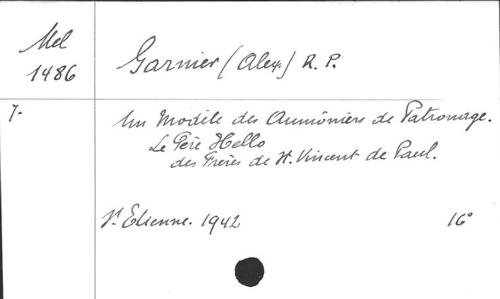 Mel
1486
Garnier (Alex.) R. P.
7-
Un Modèle des Aumôniers de Patronage.
Le Père Hello
des Frères de St. Vincent de Paul.
St Etienne. 1942
16°